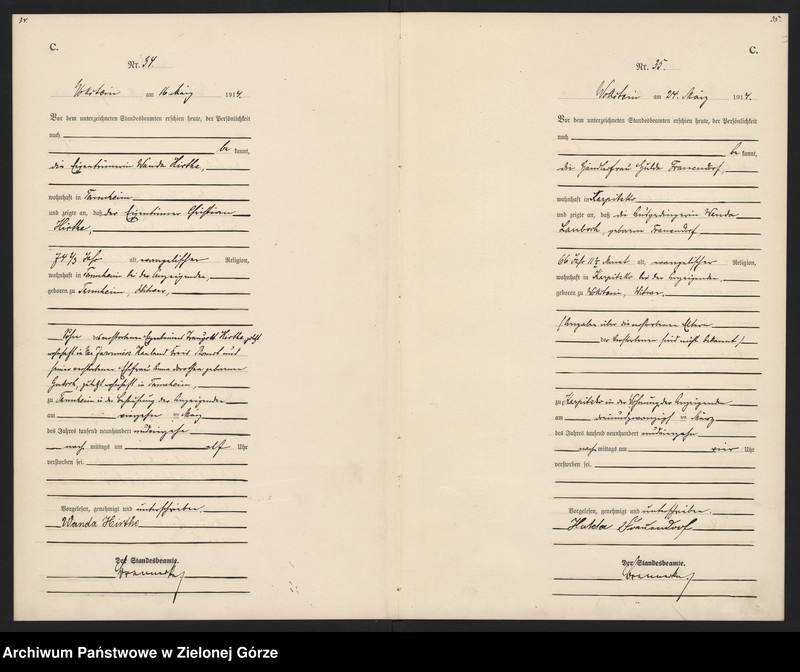 34.
C.
Nr. 34.
Wollstein am 16 März 1914.
Vor dem unterzeichneten Standesbeamten erschien heute, der Persönlichkeit
nach
be kannt,
die Eigentümerin Wanda Hirthe,
wohnhaft in Tannheim
und zeigte an, daß der Eigentümer Christian
Hirthe,
74 Jahr alt, evangelischer Religion,
wohnhaft in Tannheim bei der Anzeigenden,
geboren zu Tannheim,
Sohn des verstorbenen Eigentümers Hirthe zuletzt
wohnhaft in und
seiner verstorbenen Ehefrau Anna geborenen
zuletzt wohnhaft in Tannheim,
zu Tannheim in der Behausung der Anzeigenden
am vierzehn ten März
des Jahres tausend neunhundert und vierzehn
nach mittags um elf Uhr
verstorben sei.
Vorgelesen, genehmigt und unterschrieben.
Wanda Hirthe
Der Standesbeamte.
35.
C.
Nr. 35.
Wollstein am 24. März 1914.
Vor dem unterzeichneten Standesbeamten erschien heute, der Persönlichkeit
nach
be kannt,
die Händlerfrau Hulda Frauendorf,
wohnhaft in Karpitzko
und zeigte an, daß die Wanda
geborene Frauendorf
66 Jahr Monat alt, evangelischer Religion,
wohnhaft in Karpitzko bei der Anzeigenden,
geboren zu Wollstein, Witwe,
(Angaben über die verstorbenen Eltern
der Verstorbenen sind nicht bekannt)
zu Karpitzko in der Wohnung der Anzeigenden
am dreiundzwanzigsten März
des Jahres tausend neunhundert und vierzehn
nach mittags um vier Uhr
verstorben sei.
Vorgelesen, genehmigt und unterschrieben.
Hulda Frauendorf
Der Standesbeamte.
Archiwum Państwowe w Zielonej Górze